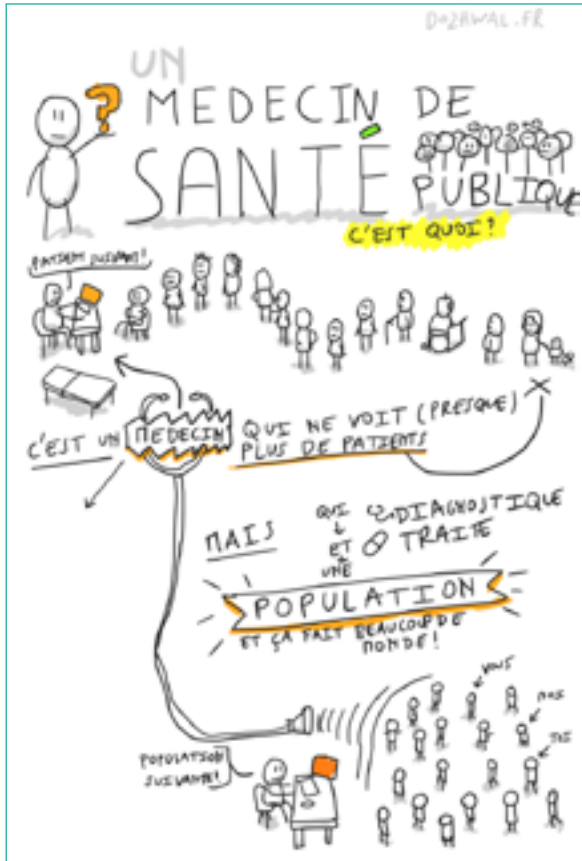 DOZAWAL.FR
UN
?
MEDECIN DE
SANTÉ
PUBLIQUE
C'EST QUOI?
PATIENT SUIVANT!
C'EST UN MEDECIN QUI NE VOIT (PRESQUE)
PLUS DE PATIENTS
MAIS
QUI DIAGNOSTIQUE
ET TRAITE
UNE
POPULATION
ET ÇA FAIT BEAUCOUP DE
MONDE!
VOUS
POPULATION
SUIVANTE!